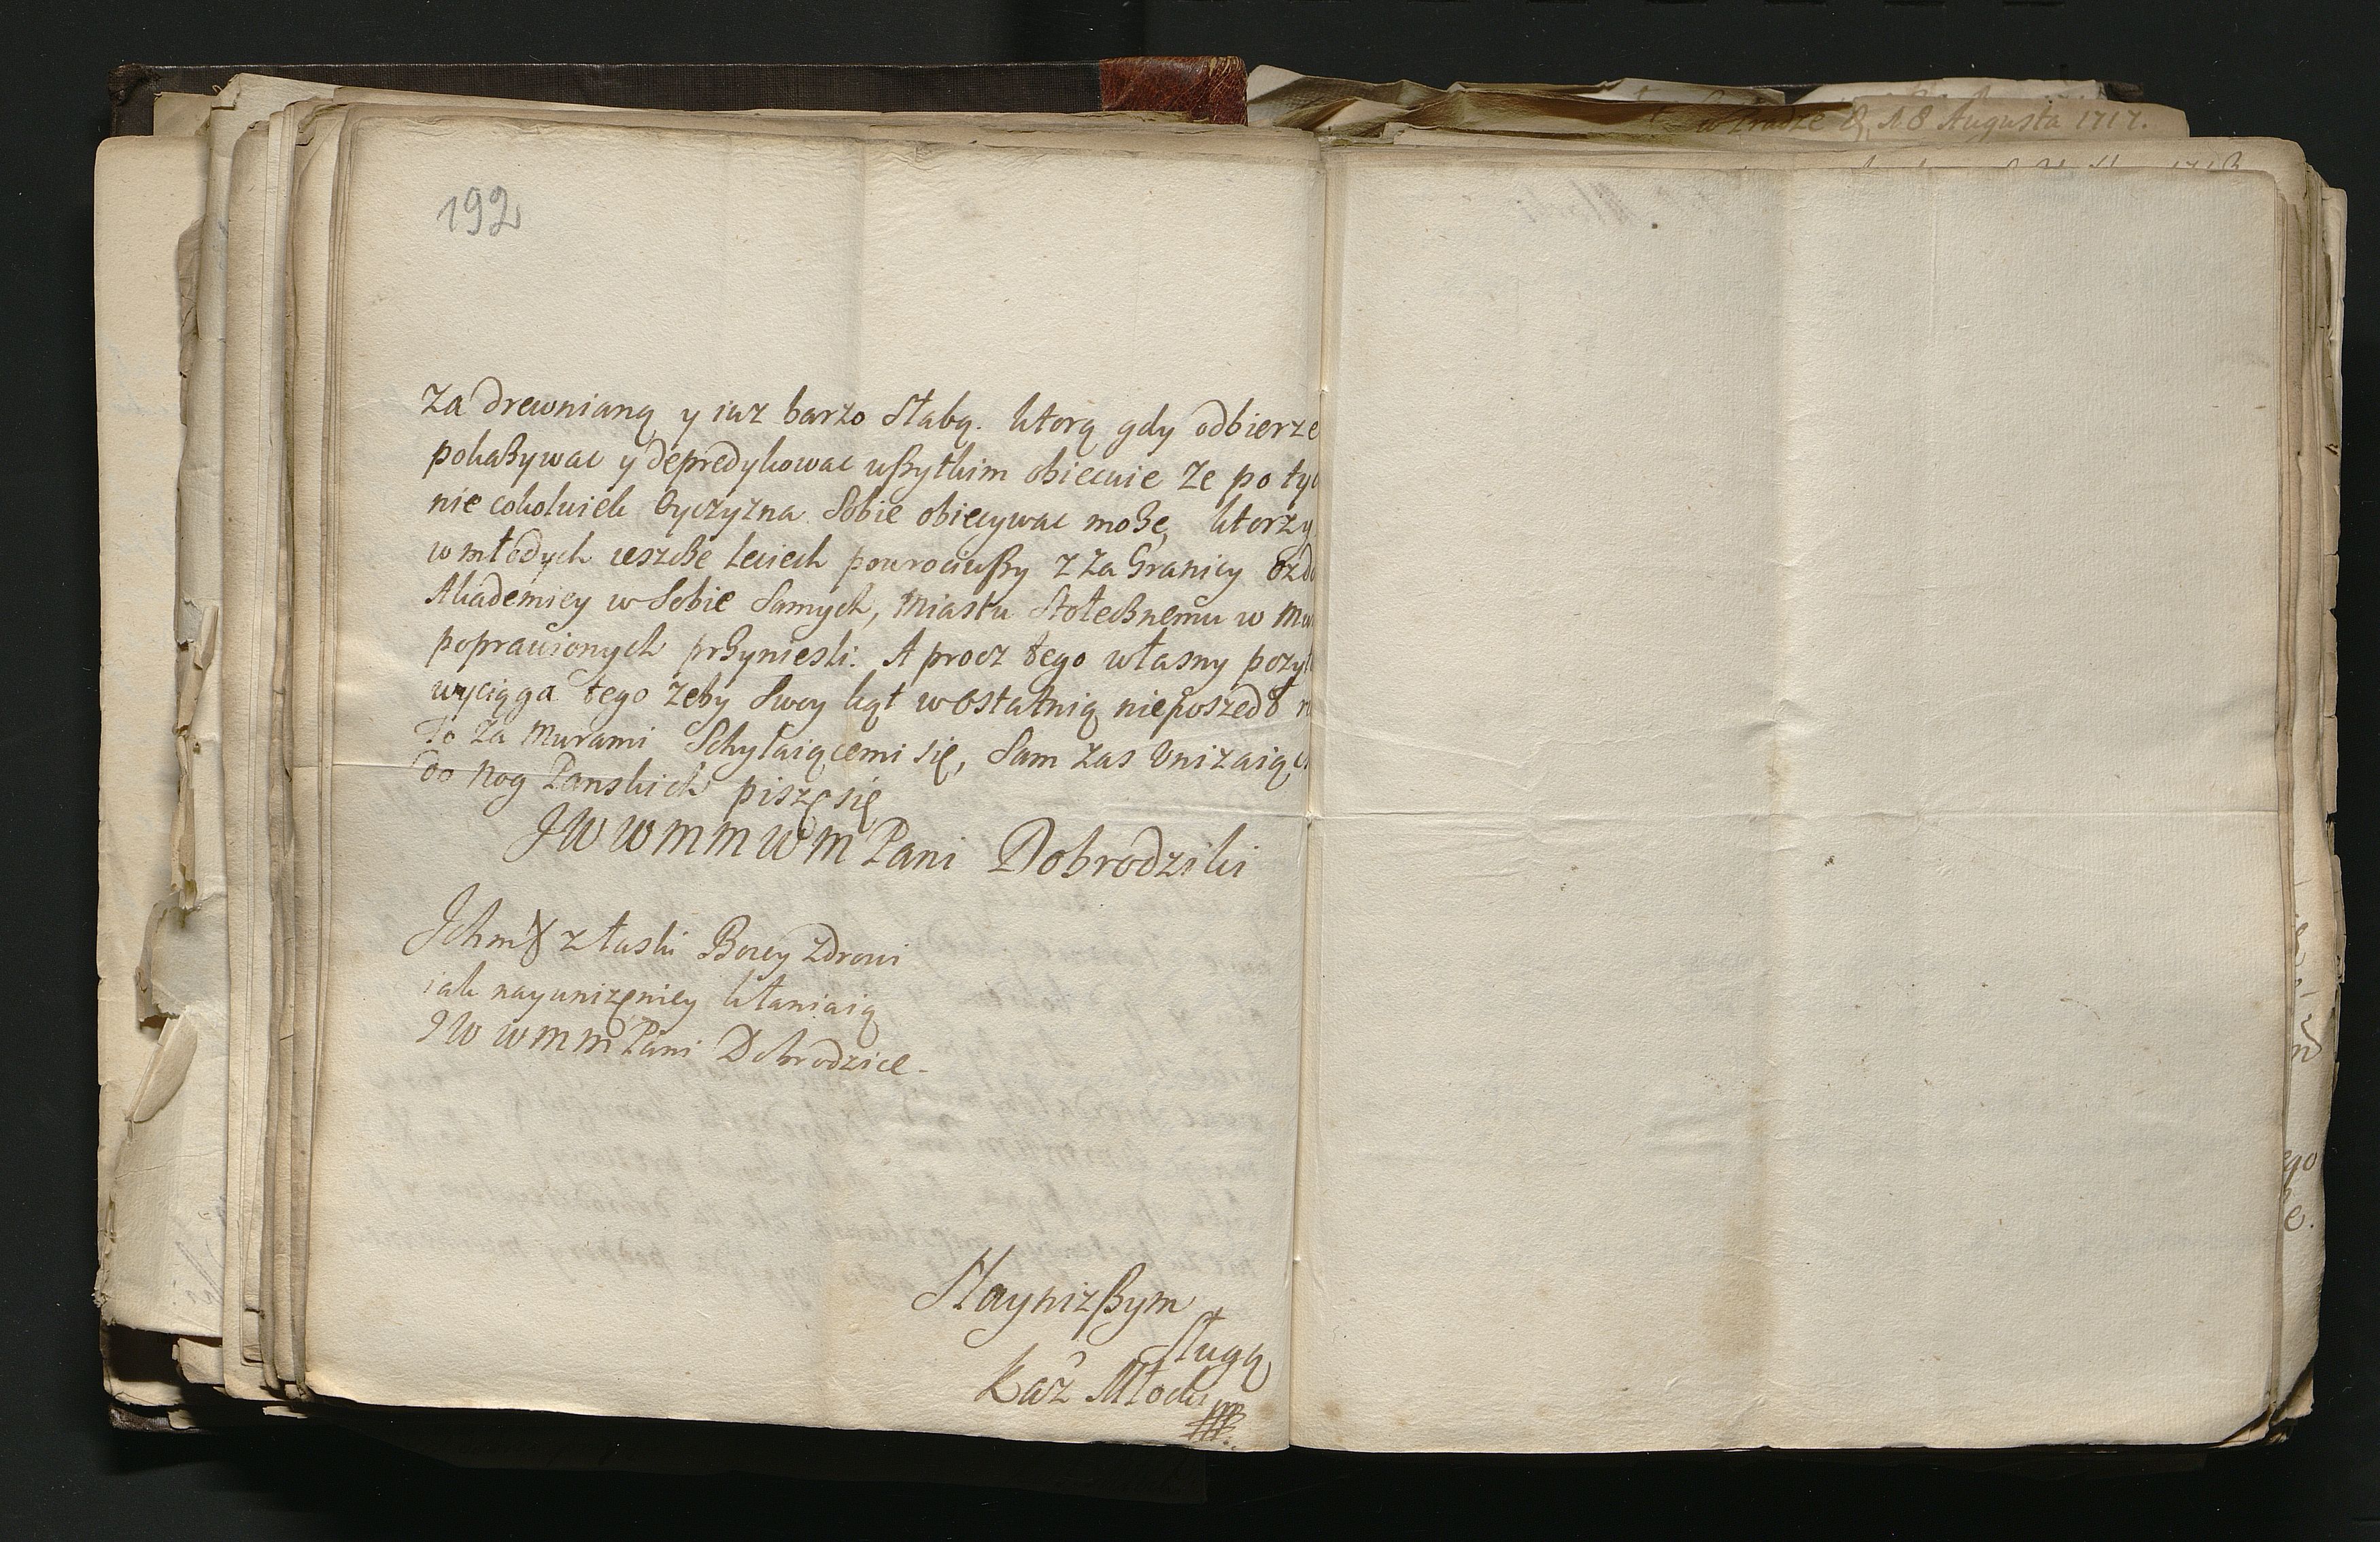 w Grudze D. 18 Augusta 1717.
192
Za drewnianą y iuz barzo słabą. ktorą gdy odbierze
pokazywac y depredykowac wszytkim obiecuie Ze po ty
nie cokolwiek Oyczyzna Sobie obiecywac może, ktorzy
w młodych ieszcze leciech powrociwszy z Za Granicy ozd
Akademiey w Sobie Samych, Miastu Stołecznemu w Mu
poprawionych przyniesli. A procz tego własny pozyt
wyciąga tego zeby Swoy kąt w Ostatnią nieposzedł r
To Za Murami Schylaiącemi się, Sam zas Unizaiąc
do Nog Panskich piszę się
JWWMMWM Pani Dobrodziki
Ichm z łaski Bozey zdrowi
iak nayunizęniey kłaniaią
JWWMM Pani Dobrodzice.
Naynizszym
sługą
Kaz Młocki
ego
e.